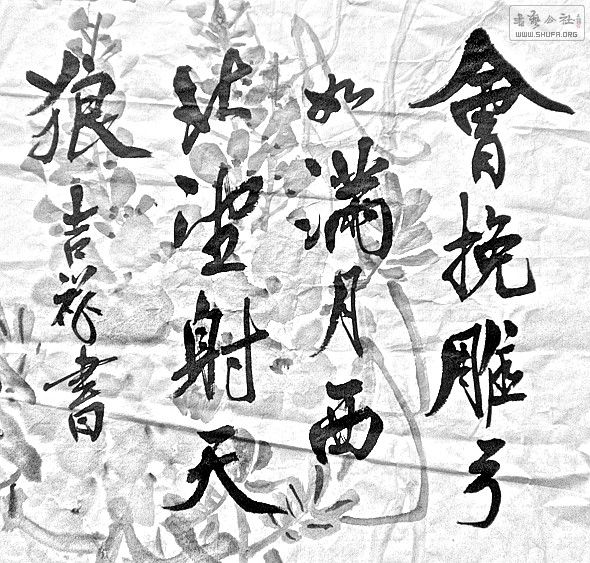 會挽雕弓
如滿月西
北望射天
狼 吉祥書
書藝公社
WWW.SHUFA.ORG